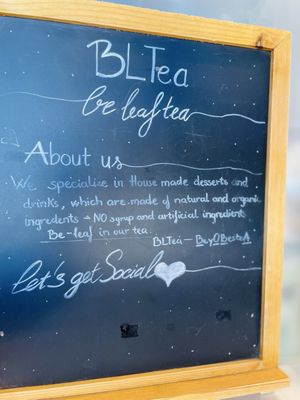 BLTea
be leaf tea
About us
We specialize in House made desserts and
drinks, which are made of natural and organic
ingredents → NO syrup and artificial ingredient
Be-leaf in our tea
BLTea —
let's get Social